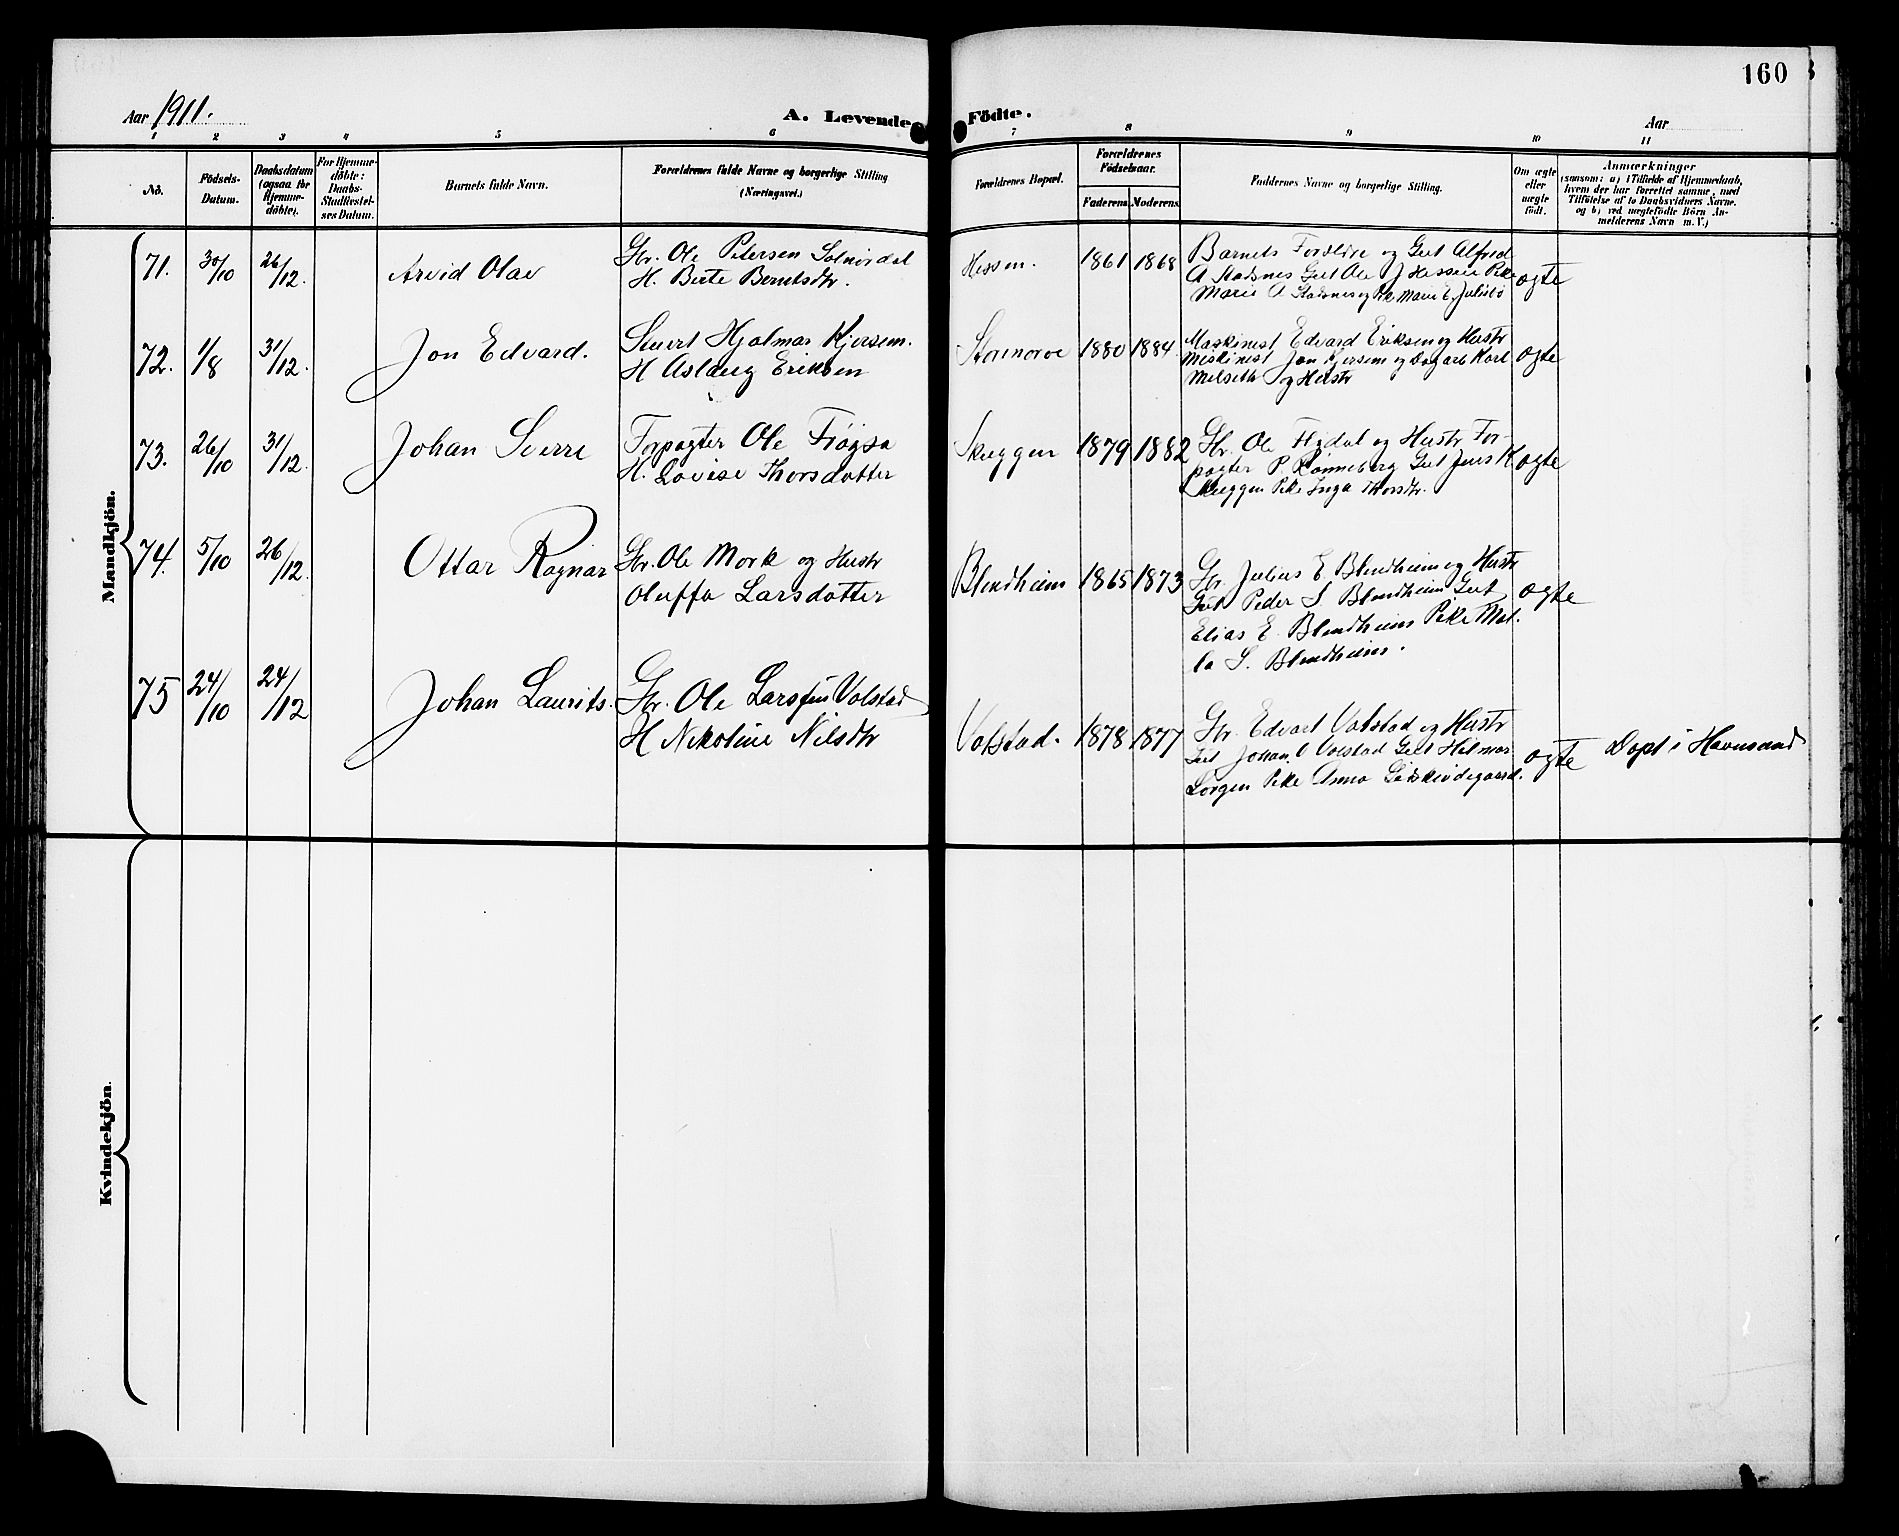 160
Aar 1911.
A. Levende Födte.
Aar
1 2 3 4 5 6 7 8 9 10 11
No.
Födsels-
Datum.
Daabsdatum
(ogsaa for
Hjemme-
döbte).
For Hjemme-
döbte:
Daabs-
Stadfestel-
ses Datum.
Barnets fulde Navn.
Forældrenes fulde Navne og borgerlige Stilling
(Næringsvei.)
Forældrenes Bopæl.
Forældrenes
Födselsaar.
Faderens. Moderens.
Faddernes Navne og borgerlige Stilling.
Om ægte
eller
uægte
födt.
Anmærkninger
(saasom: a) i Tilfælde af Hjemmedaab,
hvem der har forrettet samme, med
Tilföielse af to Daabsvidners Navne.
og b) ved uægtefödte Börn An-
melderens Navn m. V.)
Mandkjön.
71. 30/10 26/12. Arvid Olav
Gbr. Ole Petersen Solnördal
H. Berte Berntsdtr.
Hessen. 1861 1868
Barnets Foreldre og Gut Alfred
A Stadsnes Gut Ole J Hessen Pike
Marie A Stadsnes og Pk Marie E. Julsbö
ægte
72. 1/8 31/12. Jon Edvard.
Stuert Hjalmar Kjersem.
H Aslaug Eriksen
Storenorve 1880 1884
Maskinist Edvard Eriksen og Hustr
Maskinist Jon Kjersem og Dagarb Karl
Melseth og Hustr
ægte
73. 26/10 31/12. Johan Sverre
Forpagter Ole Frögsa
H. Lovise Thorsdatter
Skuggen 1879 1882
Gbr. Ole Flydal og Hustr For-
pagter P. Rönneberg Gut Jens K
Skuggen Pike Inga Thorsdtr.
ægte
74. 5/10 26/12. Ottar Ragnar
Gbr. Ole Mork og Hustr
Oluffa Larsdatter
Blindheim 1865 1873
Gbr. Julius E Blindheim og Hustr
Gut Peder S. Blindheim Gut
Elias E. Blindheim Pike Mat.
la S. Blindheim.
ægte
75 24/10 24/12 Johan Laurits.
Gbr. Ole Larsen Valstad
H Nikoline Nilsdtr
Valstad. 1878 1877
Gbr. Edvart Valstad og Hustr
Gut Johan O Valstad Gut Hilmar
Sörgen Pike Anna Gödskindegaard.
ægte Döpt i Havnsund
Kvindekjön.